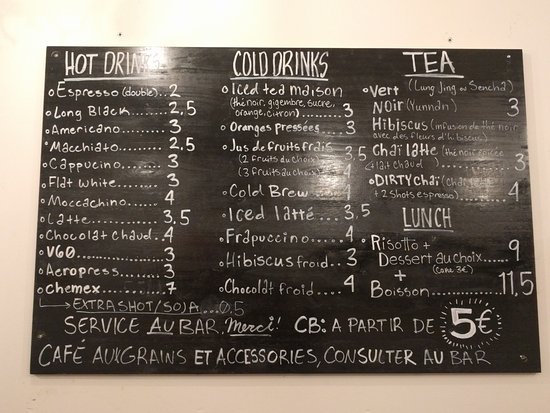 HOT DRINKS
Espresso (double)..2
Long Black.......2,5
Americano.......3
Macchiato.......2,5
Cappucino......3
Flat white......3
Moccachino....4
Latte...........3,5
Chocolat chaud..4
V60............3
Aeropress......3
Chemex.......7
EXTRA SHOT/SOJA....0,5
COLD DRINKS
Iced tea maison
(thé noir, gigembre, sucre,
orange, citron)......3
Oranges pressées...3
Jus de fruits frais
(2 fruits du choix) 3,5
(3 fruits au choix) 4
Cold Brew.......4
Iced latté....3,5
Frapuccino....4
Hibiscus froid...3
Chocolat froid....4
TEA
Vert (Lung Jing ou Sencha)
Noir (Yunnan) 3
Hibiscus (infusion de thé noir
avec des fleurs d'hibiscus)
Chaï Latte (thé noir épicée
+ lait chaud)..........3
DIRTY chaï (chaï latte
+ 2 shots espresso)....4
LUNCH
Risotto +
Dessert au choix....9
(Cake 3€)
+
Boisson..........11,5
SERVICE AU BAR, Merci! CB: A PARTIR DE 5€
CAFÉ AUX GRAINS ET ACCESSORIES, CONSULTER AU BAR